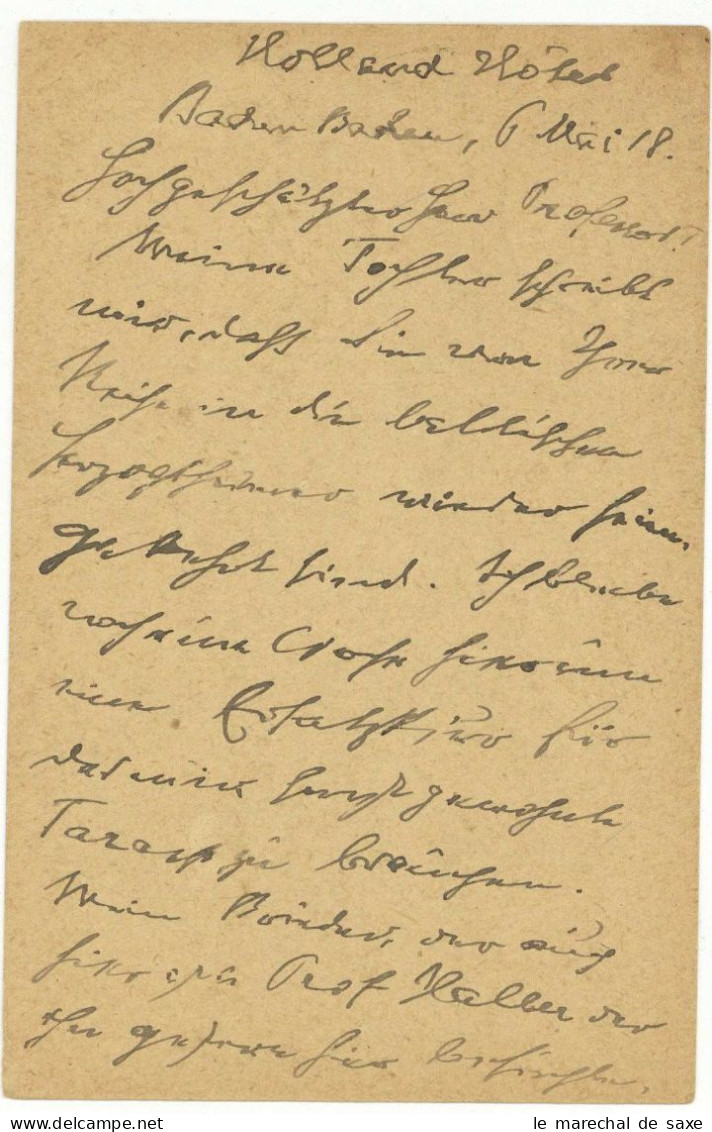 Holland Hôtel
Baden Baden, 6 Mai 18.
Hochgeschätzter Herr Professor!
Meine Tochter schreibt
mir, dass Sie von Ihrer
Reise in die baltischen
Herzogthümer wieder heim-
gekehrt sind. Ich bleibe
noch eine Woche hier um
eine Ersatzkur für
das mir sonst gewohnte
Tarasp zu brauchen.
Mein Bruder, der auch
hier ist Prof Haller der
ihn gestern hier besuchte,
le marechal de saxe